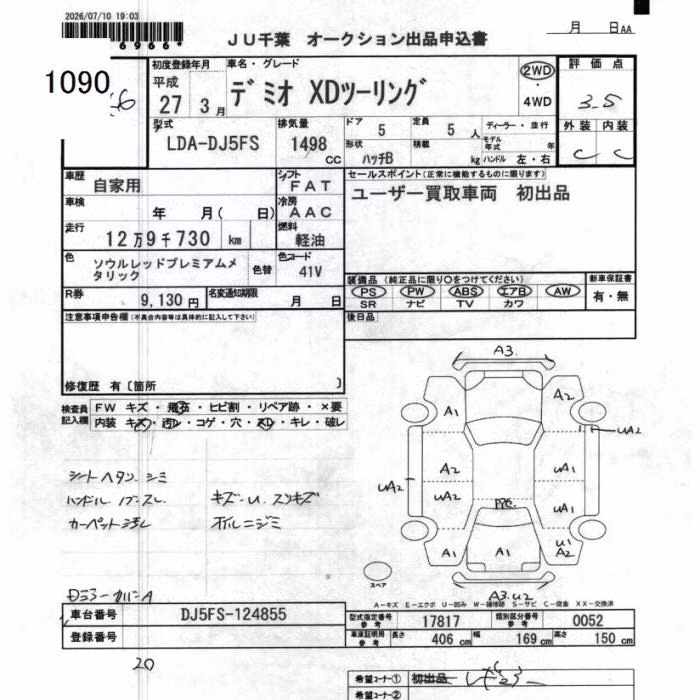 2026/07/10 19:03
6966*
JU千葉 オークション出品申込書
月 日 AA
1090
初度登録年月 車名・グレード
平成
27 3月
デミオ XDツーリング
2WD
・
4WD
評価点
3.5
外装 内装
C C
型式
LDA-DJ5FS
排気量
1498
cc
ドア 5
定員 5 人
形状 ハッチB
積載 kg
ディーラー・並行
モデル年式 年
ハンドル 左・右
車歴 自家用
シフト FAT
車検 年 月( 日)
冷房 AAC
走行 12万9千730 km
燃料 軽油
色 ソウルレッドプレミアムメタリック
色替
色コード 41V
R券 9,130円
名変通知期限 月 日
セールスポイント(正常に機能するものに限ります)
ユーザー買取車両 初出品
装備品(純正品に限り○をつけてください)
PS PW ABS エアB AW
SR ナビ TV カワ
新車保証書
有・無
後日品
注意事項申告欄(不具合内容等は具体的に記入して下さい)
修復歴 有〔箇所 〕
検査員記入欄
FW キズ・飛石・ヒビ割・リペア跡・×要
内装 キズ・汚レ・コゲ・穴・スレ・キレ・破レ
シートヘタリ シミ
ハンドル スレ
キズ・U. スリキズ
カーペット汚レ
オイルニジミ
A3.
A1
A2
UA2
A2
UA1
UA2
UA2
UA1
A1
A1
U1
A2
スペア
A3.U2
A-キズ E-エクボ U-凹み W-補修跡 S-サビ C-腐食 XX-交換済
車台番号 DJ5FS-124855
登録番号
型式指定番号 参考 17817
類別区分番号 参考 0052
車庫証明用 参考 長さ 406 cm 幅 169 cm 高さ 150 cm
20
希望コーナー① 初出品
希望コーナー②